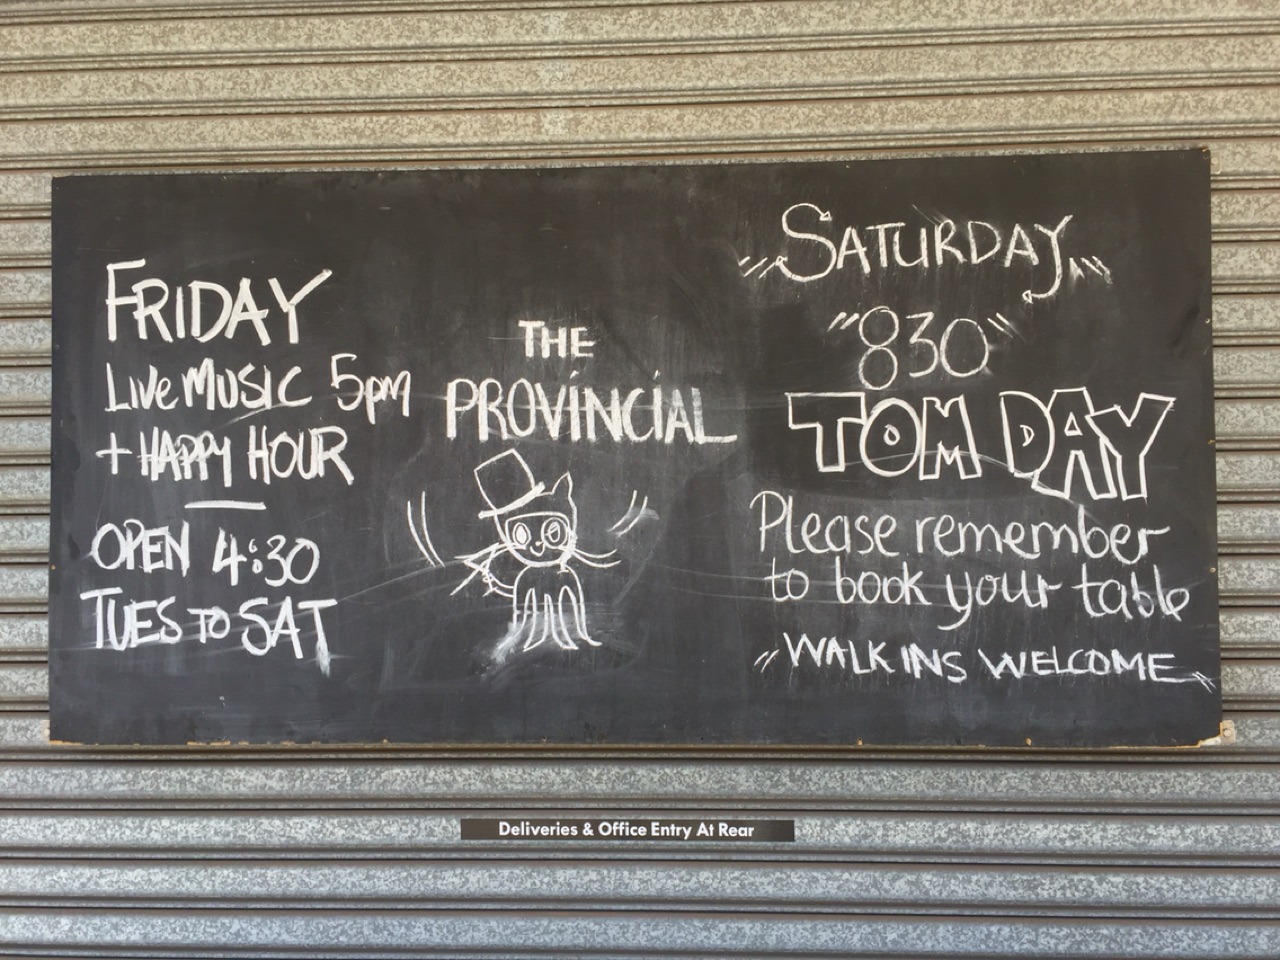 FRIDAY
LIVE MUSIC 5pm
+ HAPPY HOUR
OPEN 4:30
TUES TO SAT
THE
PROVINCIAL
SATURDAY
"830"
TOM DAY
Please remember
to book your table
"WALK INS WELCOME"
Deliveries & Office Entry At Rear